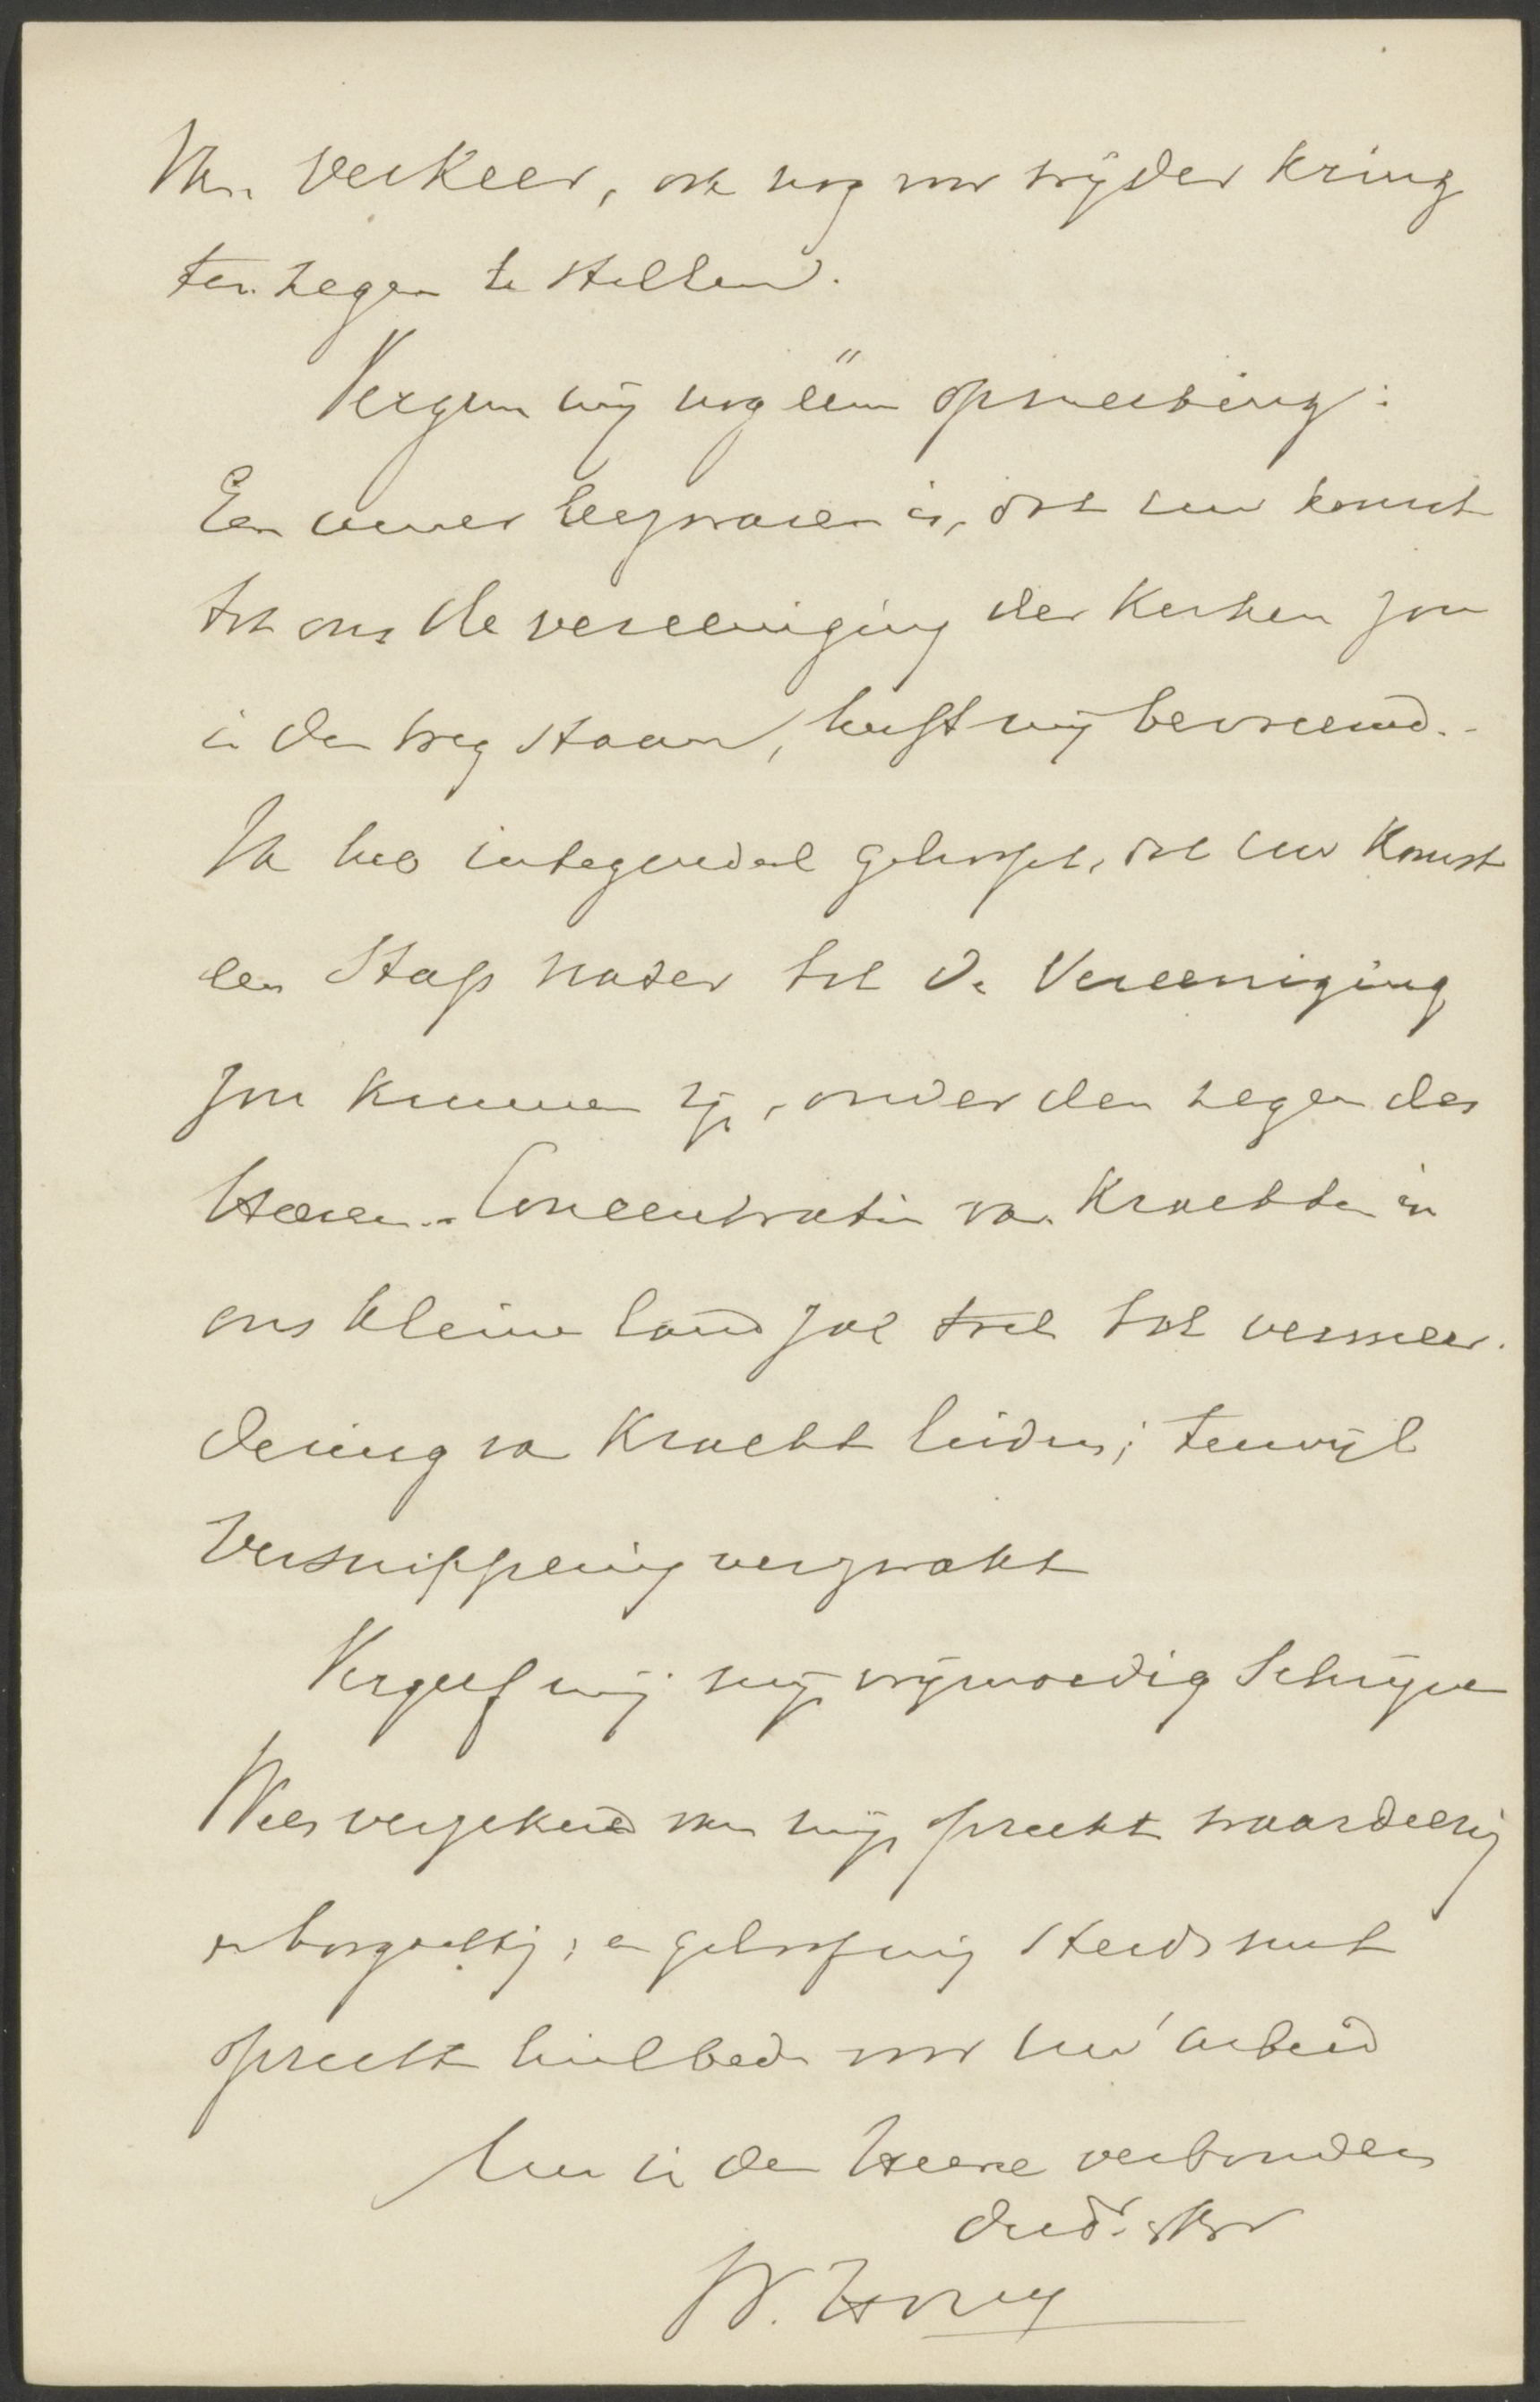 Uw verkeer, ook nog voor wijder kring
ten zegen te stellen.
Vergun mij nog één opmerking:
Een uwer bezwaren is, dat uw komst
tot ons de vereeniging der Kerken zou
in den weg staan, heeft mij bevreemd.
Ik heb integendeel gehoopt, dat uw Komst
een Stap nader tot de Vereeniging
zou kunnen zijn, onder den zegen des
Heeren. Concentratie van Krachten in
ons kleine land zal toch tot vermeer-
dering van Kracht leiden; terwijl
Versnippering verzwakt
Vergeef mij mijn vrijmoedig Schrijven
Wees verzekerd van mijn oprecht waardeering
en hoogachting; en geloof mij steeds met
oprecht heilbede voor uw arbeid
Uw in den Heere verbonden
dnr. en br